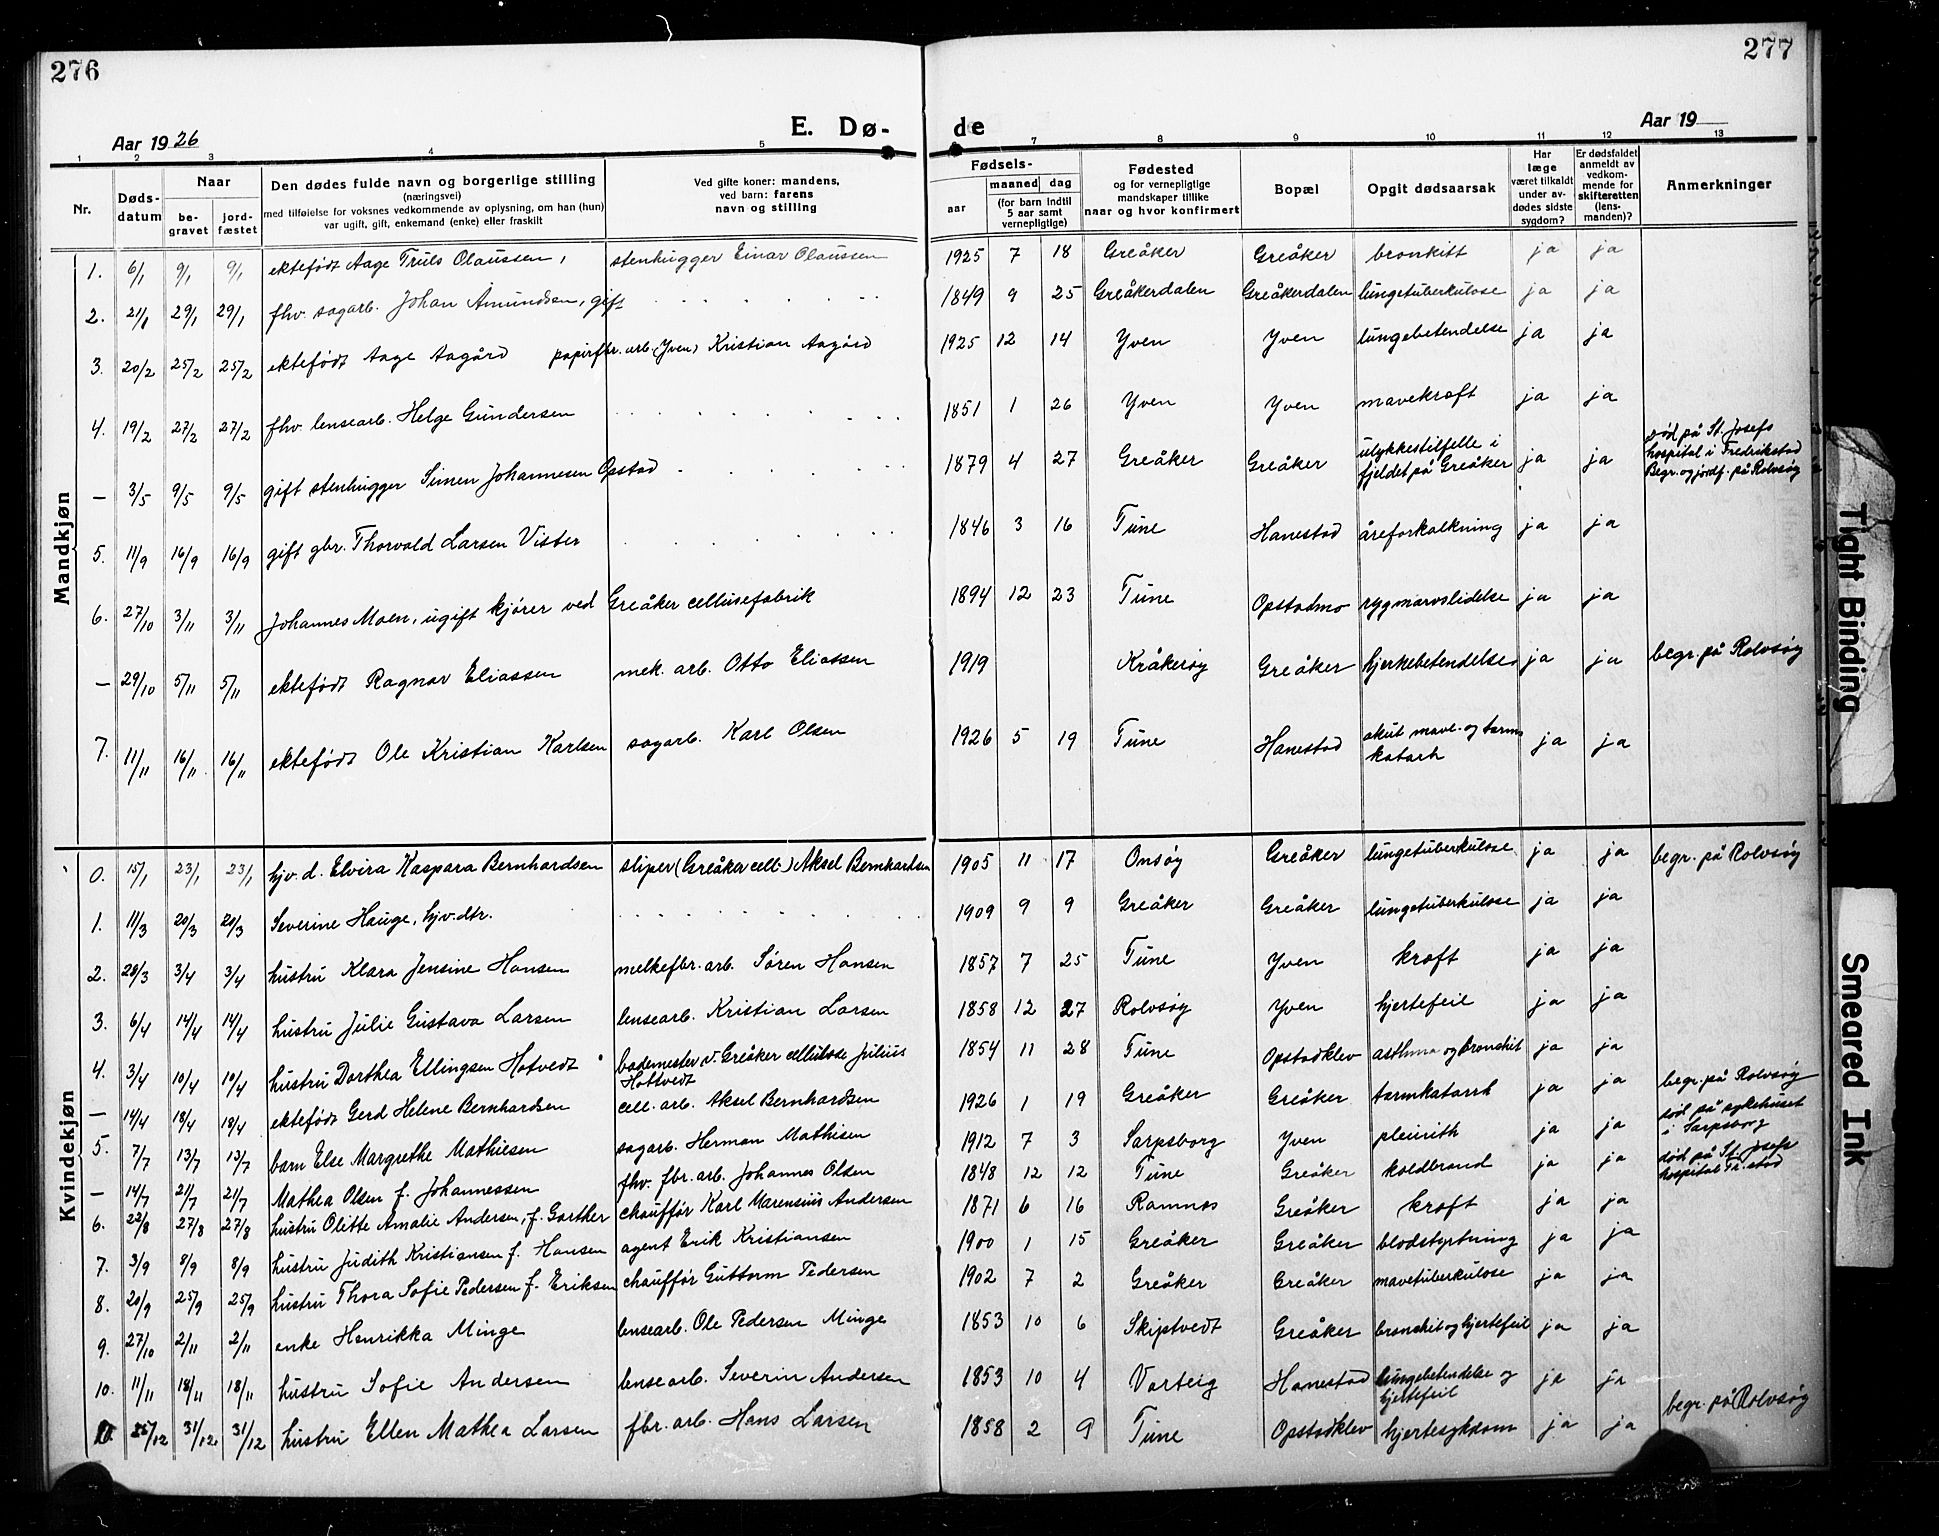 276
277
Aar 1926
E. Dø-
de
Aar 19
1 2 3 4 5 7 8 9 10 11 12 13
Nr.
Døds-
datum
Naar
be-
gravet
jord-
fæstet
Den dødes fulde navn og borgerlige stilling
(næringsvei)
med tilføielse for voksnes vedkommende av oplysning, om han (hun)
var ugift, gift, enkemand (enke) eller fraskilt
Ved gifte koner: mandens,
ved barn: farens
navn og stilling
Fødsels-
aar
maaned
dag
(for barn indtil
5 aar samt
vernepligtige)
Fødested
og for vernepligtige
mandskaper tillike
naar og hvor konfirmert
Bopæl
Opgit dødsaarsak
Har
læge
været tilkaldt
under av-
dødes sidste
sygdom?
Er dødsfaldet
anmeldt av
vedkom-
mende for
skifteretten
(lens-
manden)?
Anmerkninger
Mandkjøn
1. 6/1 9/1 9/1 ektefødt Aage Truls Olaussen, stenhugger Einar Olaussen 1925 7 18 Greåker Greåker bronkitt ja ja
2. 21/1 29/1 29/1 fhv. sagarb. Johan Amundsen, gift 1849 9 25 Greåkerdalen Greåkerdalen lungetuberkulose ja ja
3. 20/2 25/2 25/2 ektefødt Aage Aagård papirfbr. arb. (Yven) Kristian Aagård 1925 12 14 Yven Yven lungebetendelse ja ja
4. 19/2 27/2 27/2 fhv. lensearb. Helge Gundersen 1851 1 26 Yven Yven mavekræft ja ja
— 3/5 9/5 9/5 gift stenhugger Simen Johannesen Opstad 1879 4 27 Greåker Greåker ulykkestilfelle i
fjeldet på Greåker ja ja død på St. Josefs
hospital i Fredrikstad
Begr. og jordf. på Rolvsøy
5. 11/9 16/9 16/9 gift gbr. Thorvald Larsen Vister 1846 3 16 Tune Hanestad åreforkalkning ja ja
6. 27/10 3/11 3/11 Johannes Moen, ugift kjører ved Greåker cellusefabrik 1894 12 23 Tune Opstadmo rygmarvslidelse ja ja
— 29/10 5/11 5/11 ektefødt Ragnar Eliassen mek. arb. Otto Eliassen 1919 Kråkerøy Greåker hjerkebetendelse ja ja begr. på Rolvsøy
7. 11/11 16/11 16/11 ektefødt Ole Kristian Karlsen sagarb. Karl Olsen 1926 5 19 Tune Hanestad akut mave- og tarm
katarh ja ja
Kvindekjøn
0. 15/1 23/1 23/1 hjv. d. Elvira Kaspara Bernhardsen sliper (Greåker cell.) Aksel Bernhardsen 1905 11 17 Onsøy Greåker lungetuberkulose ja ja begr. på Rolvsøy
1. 11/3 20/3 20/3 Severine Hauge, hjv. dtr. 1909 9 9 Greåker Greåker lungetuberkulose ja ja
2. 28/3 3/4 3/4 hustru Klara Jensine Hansen melkefbr. arb. Søren Hansen 1857 7 25 Tune Yven kræft ja ja
3. 6/4 14/4 14/4 hustru Julie Gustava Larsen lensearb. Kristian Larsen 1858 12 27 Rolvsøy Yven hjertefeil ja ja
4. 3/4 10/4 10/4 hustru Dorthea Ellingsen Hotvedt bademester v. Greåker cellulose Julius
Hottvedt 1854 11 28 Tune Opstadklev asthma og bronchit ja ja
— 14/4 18/4 18/4 ektefødt Gerd Helene Bernhardsen cell. arb. Aksel Bernhardsen 1926 1 19 Greåker Greåker tarmkatarrh ja ja begr. på Rolvsøy
5. 7/7 13/7 13/7 barn Else Margrethe Mathiesen sagarb. Herman Mathisen 1912 7 3 Sarpsborg Yven pleurith ja ja død på sykehuset
i Sarpsborg
— 14/7 21/7 21/7 Mathea Olsen f. Johannessen fhv. fbr. arb. Johannes Olsen 1848 12 12 Tune Greåker koldbrand ja ja død på St. Josefs
hospital Fr.stad
6. 22/8 27/8 27/8 hustru Olitte Amalie Andersen, f. Garther chauffør Karl Marensius Andersen 1871 6 16 Ramnes Greåker kræft ja ja
7. 3/9 8/9 8/9 hustru Judith Kristiansen f. Hansen agent Erik Kristiansen 1900 1 15 Greåker Greåker blodstyrtning ja ja
8. 20/9 25/9 25/9 hustru Thora Sofie Pedersen f. Eriksen chauffør Guttorm Pedersen 1902 7 2 Greåker Greåker mavetuberkulose ja ja
9. 27/10 2/11 2/11 enke Henrikka Minge lensearb. Ole Pedersen Minge 1853 10 6 Skiptvedt Greåker bronchit og hjertefeil ja ja
10. 11/11 18/11 18/11 hustru Sofie Andersen lensearb. Severin Andersen 1853 10 4 Varteig Hanestad lungebetendelse og
hjertefeil ja ja
25/12 31/12 31/12 hustru Ellen Mathea Larsen fbr. arb. Hans Larsen 1858 2 9 Tune Opstadklev hjertesykdom ja ja begr. på Rolvsøy
Tight Binding
Smeared Ink